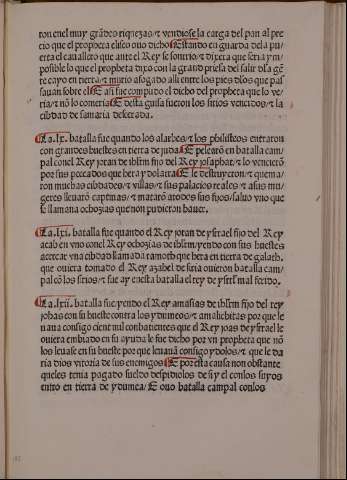 ron enel muy grãdes riquezas/ τ vendiose la carga del pan al pre
cio que el propheta eliseo ouo dicho Estando en guarda dela pu
erta el cauallero que ante el Rey se sonrrio/ τ dixera que seria ym
posible lo que el propheta dixo con la grand priesa del salir dla gẽ
te cayo en tierra/ τ murio afogado alli entre los pies dlos que pas
sauan sobre el E asi fue complido el dicho del propheta que lo ve
ria/ τ nõ lo comeria E desta guisa fueron los sirios vencidos/ τ la
cibdad de samaria descercada.
La .lx. batalla fue quando los alarbes/ τ los philisteos entraron
con grandes huestes en tierra de juda E pelearõ en batalla cam
pal conel Rey joran de ihrlm fijo del Rey josaphat/ τ lo vencierõ
por sus peccados que hera ydolatra E le destruyeron/ τ quema
ron muchas cibdades/ τ villas/ τ sus palacios reales τ a sus mu
geres lleuarõ captiuas/ τ mataro atodos sus fijos/ saluo vno que
se llamaua ochozias que non pudieron hauer.
La .lxi. batalla fue quando el Rey joran de ysrael fijo del Rey
acab en vno conel Rey ochozias de ihrlm/ yendo con sus huestes
acercar vna cibdad llamada ramoth que hera en tierra de galath.
que ouiera tomado el Rey azahel de siria ouieron batalla cam
pal cõ los sirios/ τ fue ay en esta batalla el rey de ysrl mal ferido.
La .lxii. batalla fue yendo el Rey amasias de ihrlm fijo del rey
johas con su hueste contra los ydumeos/ τ amalechitas por que le
uaua consigo cient mil conbatientes que el Rey joas de ysrael le
ouiera embiado en su ayuda le fue dicho por vn propheta que nõ
los leuase en su hueste por que leuauã consigo ydolos/ τ que le da
ria dios vitoria de sus enemigos E por esta causa non obstante
queles tenia pagado sueldo despidiolos de si y el conlos suyos
entro en tierra de ydumea/ E ouo batalla campal conlos